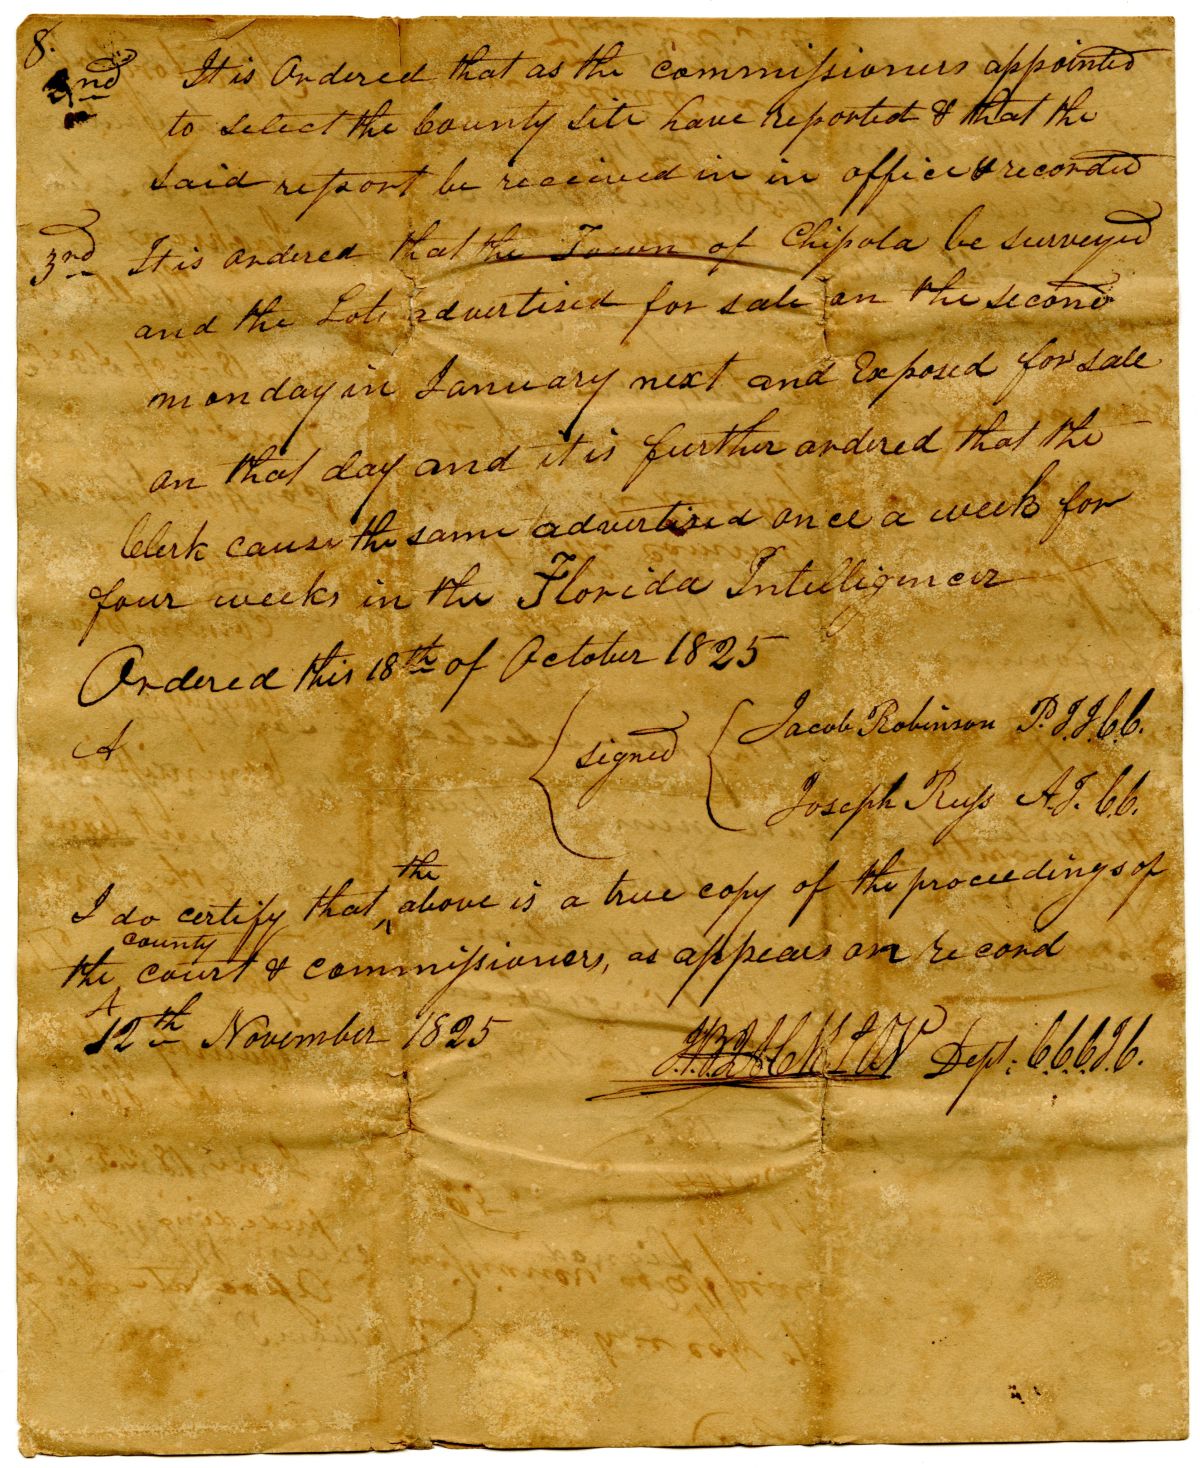 8.
2nd It is Ordered that as the commissioners appointed
to select the County site have reported & that the
said report be received in in office & recorded
3rd It is ordered that the Town of Chipola be surveyed
and the Lots advertised for sale on the second
monday in January next and Exposed for sale
on that day and it is further ordered that the
Clerk cause the same advertised once a week for
four weeks in the Florida Intelligencer
Ordered this 18th of October 1825
A
signed
Jacob Robinson P.J.J.C.C.
Joseph Russ A.J. C.C.
I do certify that the above is a true copy of the proceedings of
the county court & commissioners, as appears on record
12th November 1825
Dept. C.C.C.J.C.